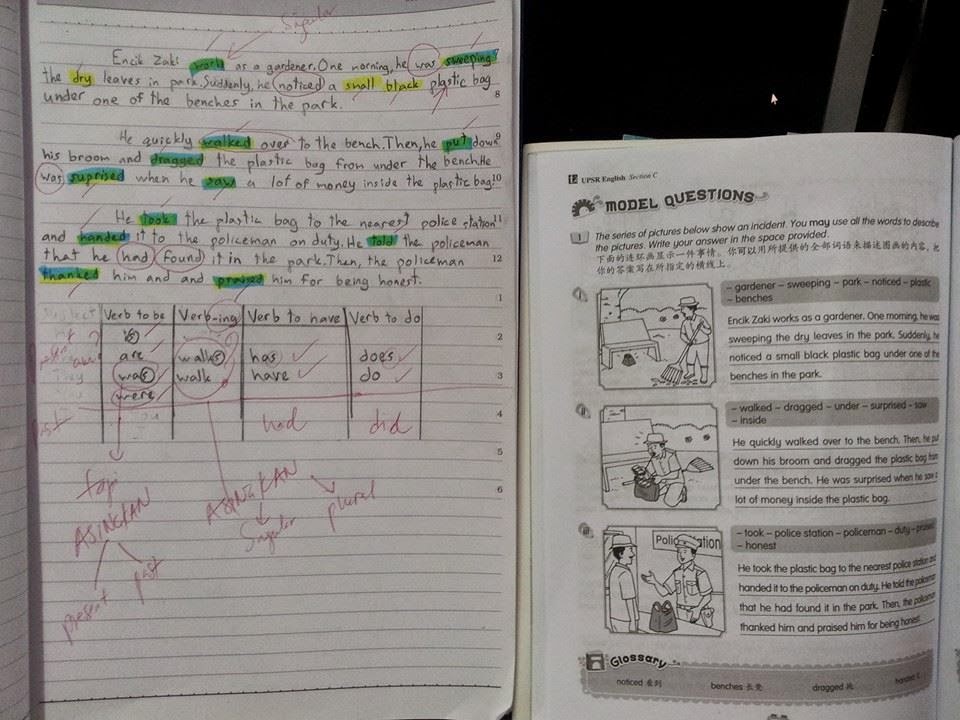 Singular
Encik Zaki work as a gardener. One morning, he was sweeping
the dry leaves in park. Suddenly, he noticed a small black plastic bag
8
under one of the benches in the park.
He quickly walked over to the bench. Then, he put down
9
his broom and dragged the plastic bag from under the bench. He
was suprised when he saw a lot of money inside the plastic bag.
10
He took the plastic bag to the nearest police station
11
and handed it to the policeman on duty. He told the policeman
that he had found it in the park. Then, the policeman
12
thanked him and and praised him for being honest.
1
Verb to be Verb-ing Verb to have Verb to do
is
2
are walks has does
was walk have do
3
were
4
had did
5
6
ASINGKAN
ASINGKAN
Singular
plural
present
past
12 UPSR English Section C
MODEL QUESTIONS
1 The series of pictures below show an incident. You may use all the words to describe
the pictures. Write your answer in the space provided.
下面的连环画显示一件事情。你可以用所提供的全部词语来描述图画的内容，把
你的答案写在所指定的横线上。
– gardener – sweeping – park – noticed – plastic
– benches
Encik Zaki works as a gardener. One morning, he was
sweeping the dry leaves in the park. Suddenly, he
noticed a small black plastic bag under one of the
benches in the park.
– walked – dragged – under – surprised – saw
– inside
He quickly walked over to the bench. Then, he put
down his broom and dragged the plastic bag from
under the bench. He was surprised when he saw a
lot of money inside the plastic bag.
– took – police station – policeman – duty – praised
– honest
He took the plastic bag to the nearest police station and
handed it to the policeman on duty. He told the policeman
that he had found it in the park. Then, the policeman
thanked him and praised him for being honest.
Glossary
noticed 看到 benches 长凳 dragged 拖 handed